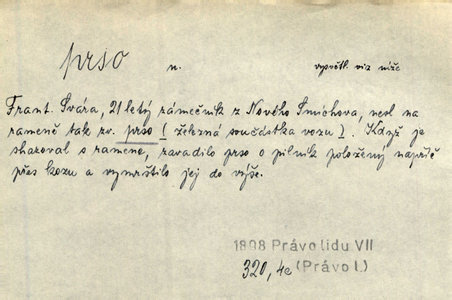 prso n. vysvětl. viz níže
Frant. Svára, 21 letý zámečník z Nového Smíchova, nesl na
rameně tak zv. prso ( železná součástka vozu ). Když je
shazoval s ramene, zavadilo prso o pilník položený napříč
přes kozu a vymrštilo jej do výše.
1898 Právo lidu VII
320, 4c (Právo l.)